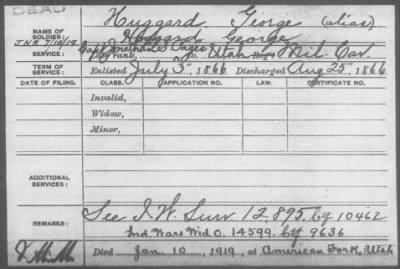 DEAD
Huggard, George (alias)
NAME OF SOLDIER: Hoggard George
J.N.A. 7/10/18
SERVICE: Capt. Jonathan S. Pages Co. Utah Mil. Cav.
TERM OF SERVICE: Enlisted July 3", 1866 Discharged Aug 25", 1866
DATE OF FILING. CLASS. APPLICATION NO. LAW. CERTIFICATE NO.
Invalid,
Widow,
Minor,
ADDITIONAL SERVICES:
REMARKS: See I.W. Surv 12895. Ctf 10462
Ind. Wars Wid O. 14599. Ctf 9636
Died Jan 10, 1919, at American Fork, Utah